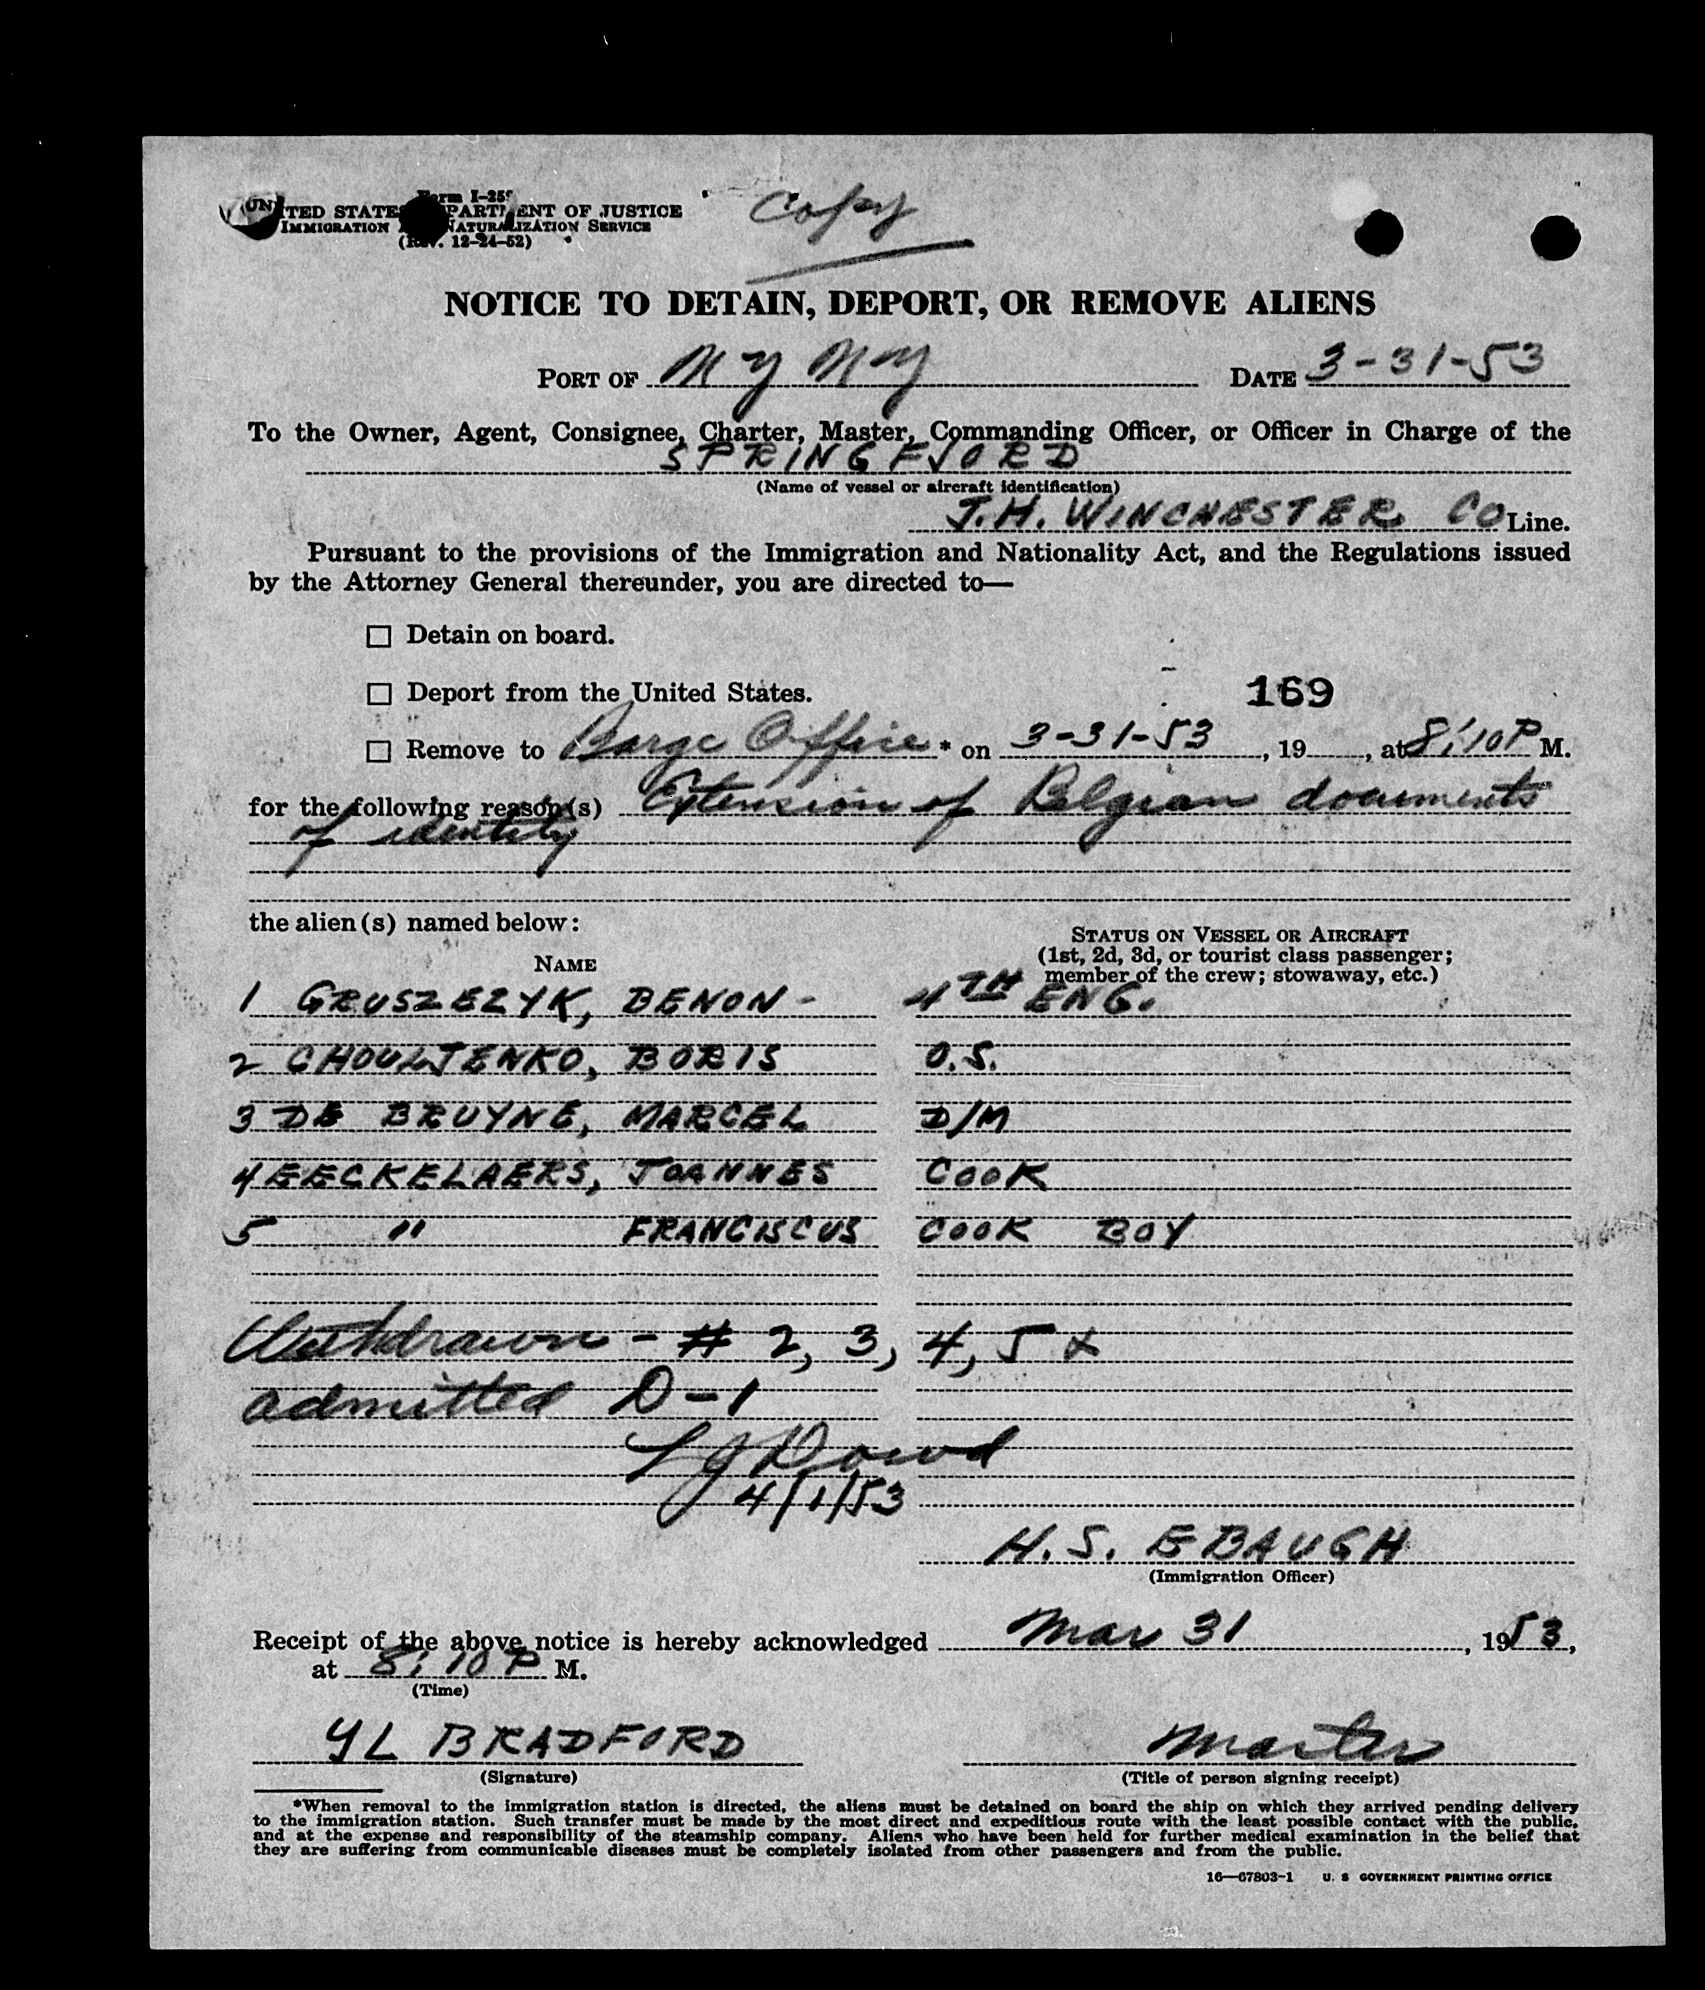 Form I-259
UNITED STATES DEPARTMENT OF JUSTICE
IMMIGRATION AND NATURALIZATION SERVICE
(Rev. 12-24-52)
Copy
NOTICE TO DETAIN, DEPORT, OR REMOVE ALIENS
PORT OF N Y N Y DATE 3-31-53
To the Owner, Agent, Consignee, Charter, Master, Commanding Officer, or Officer in Charge of the
SPRINGFJORD
(Name of vessel or aircraft identification)
J.H. WINCHESTER CO Line.
Pursuant to the provisions of the Immigration and Nationality Act, and the Regulations issued
by the Attorney General thereunder, you are directed to—
Detain on board.
Deport from the United States.
169
Remove to Barge Office * on 3-31-53, 19, at 8:10 P M.
for the following reason(s) Extension of Belgian documents
of identity
the alien(s) named below:
STATUS ON VESSEL OR AIRCRAFT
(1st, 2d, 3d, or tourist class passenger;
member of the crew; stowaway, etc.)
NAME
1 GRUSZEZYK, BENON - 4TH ENG.
2 CHOULJENKO, BORIS O.S.
3 DE BRUYNE, MARCEL D/M
4 EECKELAERS, JOANNES COOK
5 " FRANCISCUS COOK BOY
Withdrawn - # 2, 3, 4, 5 &
admitted D-1
L J Dowd
4/1/53
H. S. EBAUGH
(Immigration Officer)
Receipt of the above notice is hereby acknowledged Mar 31, 1953,
at 8:10 P M.
(Time)
YL BRADFORD Master
(Signature) (Title of person signing receipt)
*When removal to the immigration station is directed, the aliens must be detained on board the ship on which they arrived pending delivery
to the immigration station. Such transfer must be made by the most direct and expeditious route with the least possible contact with the public,
and at the expense and responsibility of the steamship company. Aliens who have been held for further medical examination in the belief that
they are suffering from communicable diseases must be completely isolated from other passengers and from the public.
16—67803-1 U. S GOVERNMENT PRINTING OFFICE